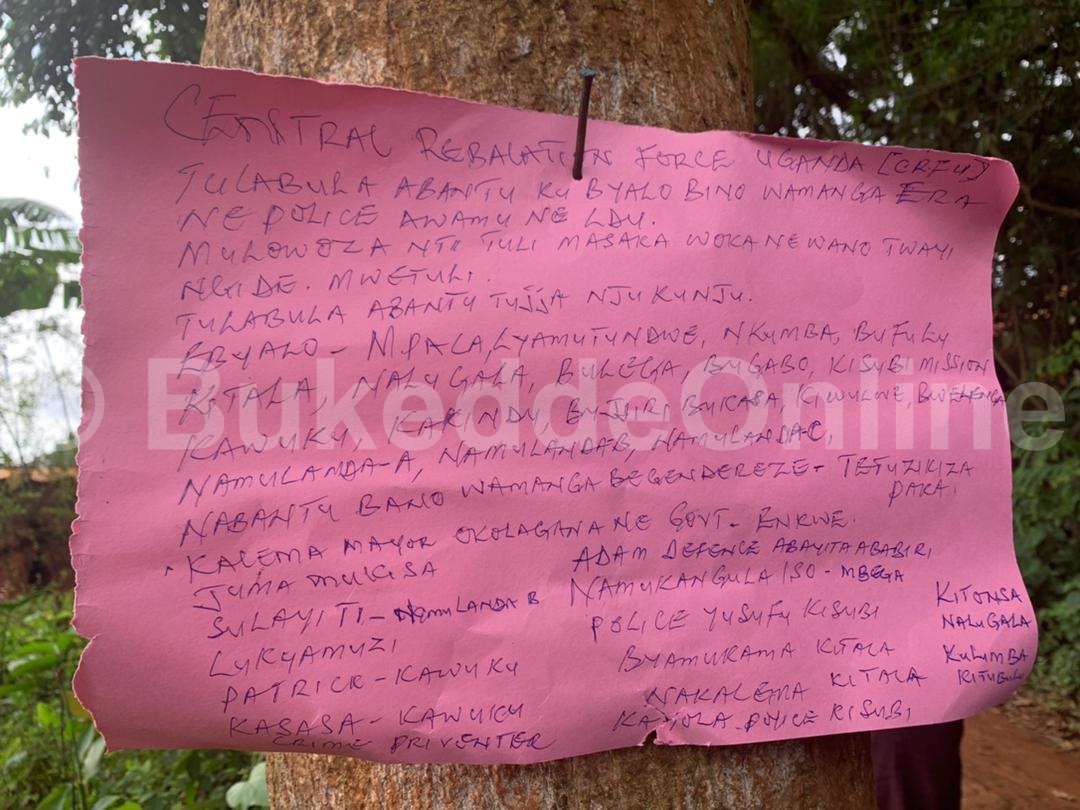 CENTRAL REBALATION FORCE UGANDA [CRFU]
TULABULA ABANTU KU BYALO BINO WAMANGA ERA
NE POLICE AWAMU NE LDU.
MULOWOZA NTI TULI MASAKA WOKA NE WANO TWAYI
NGIDE. MWETULI.
TULABULA ABANTU TUJJA NJU KU NJU.
EBYALO - MPALA, LYAMUTUNDWE, NKUMBA, BUFULU
KITALA, NALUGALA, BULEGA, BUGABO, KISUBI MISSION
KAWUKU, KAKINDU, BUJJIRI BUKASA, KIWULWE, BWELENGA
NAMULANDA-A, NAMULANDA-B, NAMULANDA-C,
NABANTU BANO WAMANGA BEGENDEREZE - TETUZIKIZA
PAKA.
KALEMA MAYOR OKOLAGANA NE GOVT - ENKWE.
JUMA MUKISA
ADAM DEFENCE ABAYITA ABABIRI
SULAYITI - NAMULANDA B
NAMUKANGULA ISO - MBEGA
LUKYAMUZI
POLICE YUSUFU KISUBI
KITONSA
NALUGALA
PATRICK - KAWUKU
BYAMUKAMA KITALA
KULUMBA
KITUBULU
KASASA - KAWUKU
NAKALEMA KITALA
CRIME PRIVENTER
KAYOLA - POLICE KISUBI
© BukeddeOnline